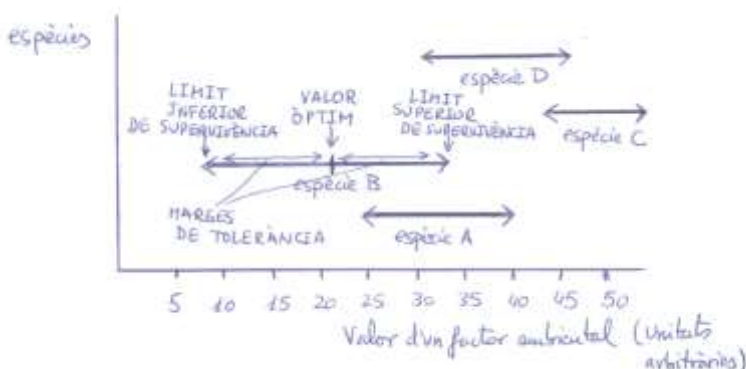 espècies
espècie D
LIMIT
INFERIOR
DE SUPERVIVÈNCIA
VALOR
ÒPTIM
LIMIT
SUPERIOR
DE SUPERVIVÈNCIA
espècie C
espècie B
MARGES
DE TOLERÀNCIA
espècie A
5 10 15 20 25 30 35 40 45 50
Valor d'un factor ambiental (Unitats
arbitràries)